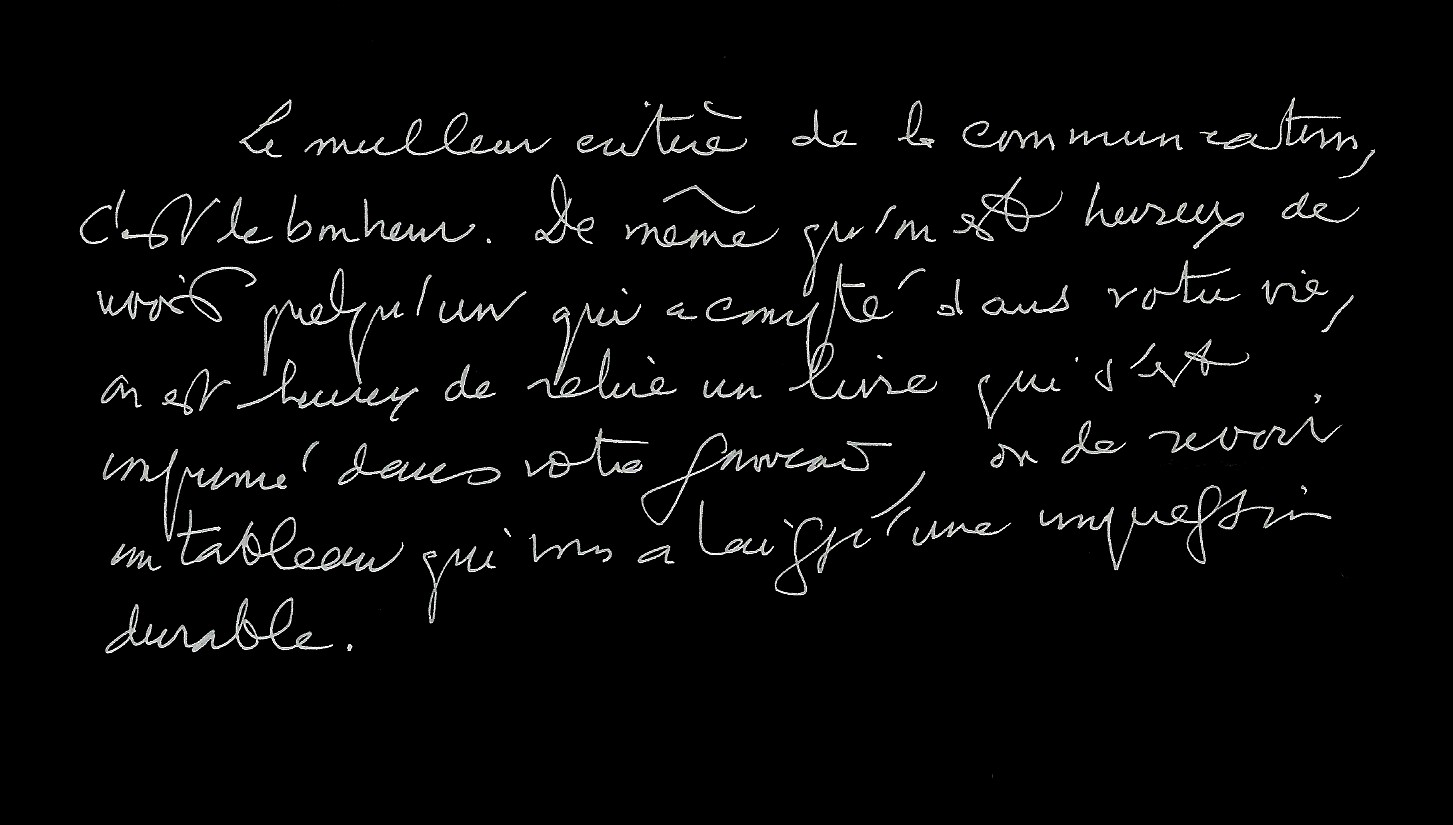 Le meilleur critère de la communication,
c'est le bonheur. De même qu'on est heureux de
voir quelqu'un qui a compté dans votre vie,
on est heureux de relire un livre qui s'est
imprimé dans votre cerveau, ou de revoir
un tableau qui vous a laissé une impression
durable.